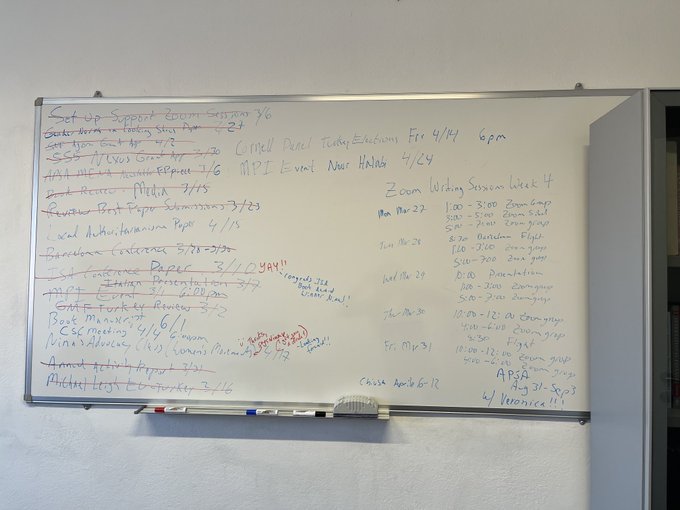 Set Up Support Zoom Sessions 3/6
SSS Nexus Grant App 3/30
3/6
Book Review Media 3/15
Review Best Paper Submissions 3/23
Local Authoritarianism Paper 4/15
Barcelona Conference 3/28-3/30
ISA Conference Paper 3/10 YAY!!
Italian Presentation 3/7
MPI Event 3/1 6:00pm
GMF Turkey Review 3/2
Book Manuscript 6/1
CSC Meeting 4/4
Nina's Advocacy Class (Women's Movements) 4/17
Annual Activity Report 3/31
Michael Leigh EU-Turkey 2/16
Congrats ISA
Book Award
Winner
Cornell Panel Turkey Elections Fri 4/14 6pm
MPI Event Nour Halabi 4/24
Zoom Writing Sessions Week 4
Mon Mar 27
1:00 - 3:00 Zoom Group
3:00 - 5:00 Zoom
5:00 - 7:00 Zoom group
Tue Mar 28
8:30 Barcelona Flight
1:00 - 3:00 Zoom group
5:00 - 7:00 Zoom group
Wed Mar 29
10:00 Presentation
1:00 - 3:00 Zoom group
5:00 - 7:00 Zoom group
Thu Mar 30
10:00 - 12:00 Zoom group
4:00 - 6:00 Zoom group
Flight
Fri Mar 31
10:00 - 12:00 Zoom group
4:00 - 6:00 Zoom group
APSA
Aug 31 - Sep 3
w/ Veronica!!!